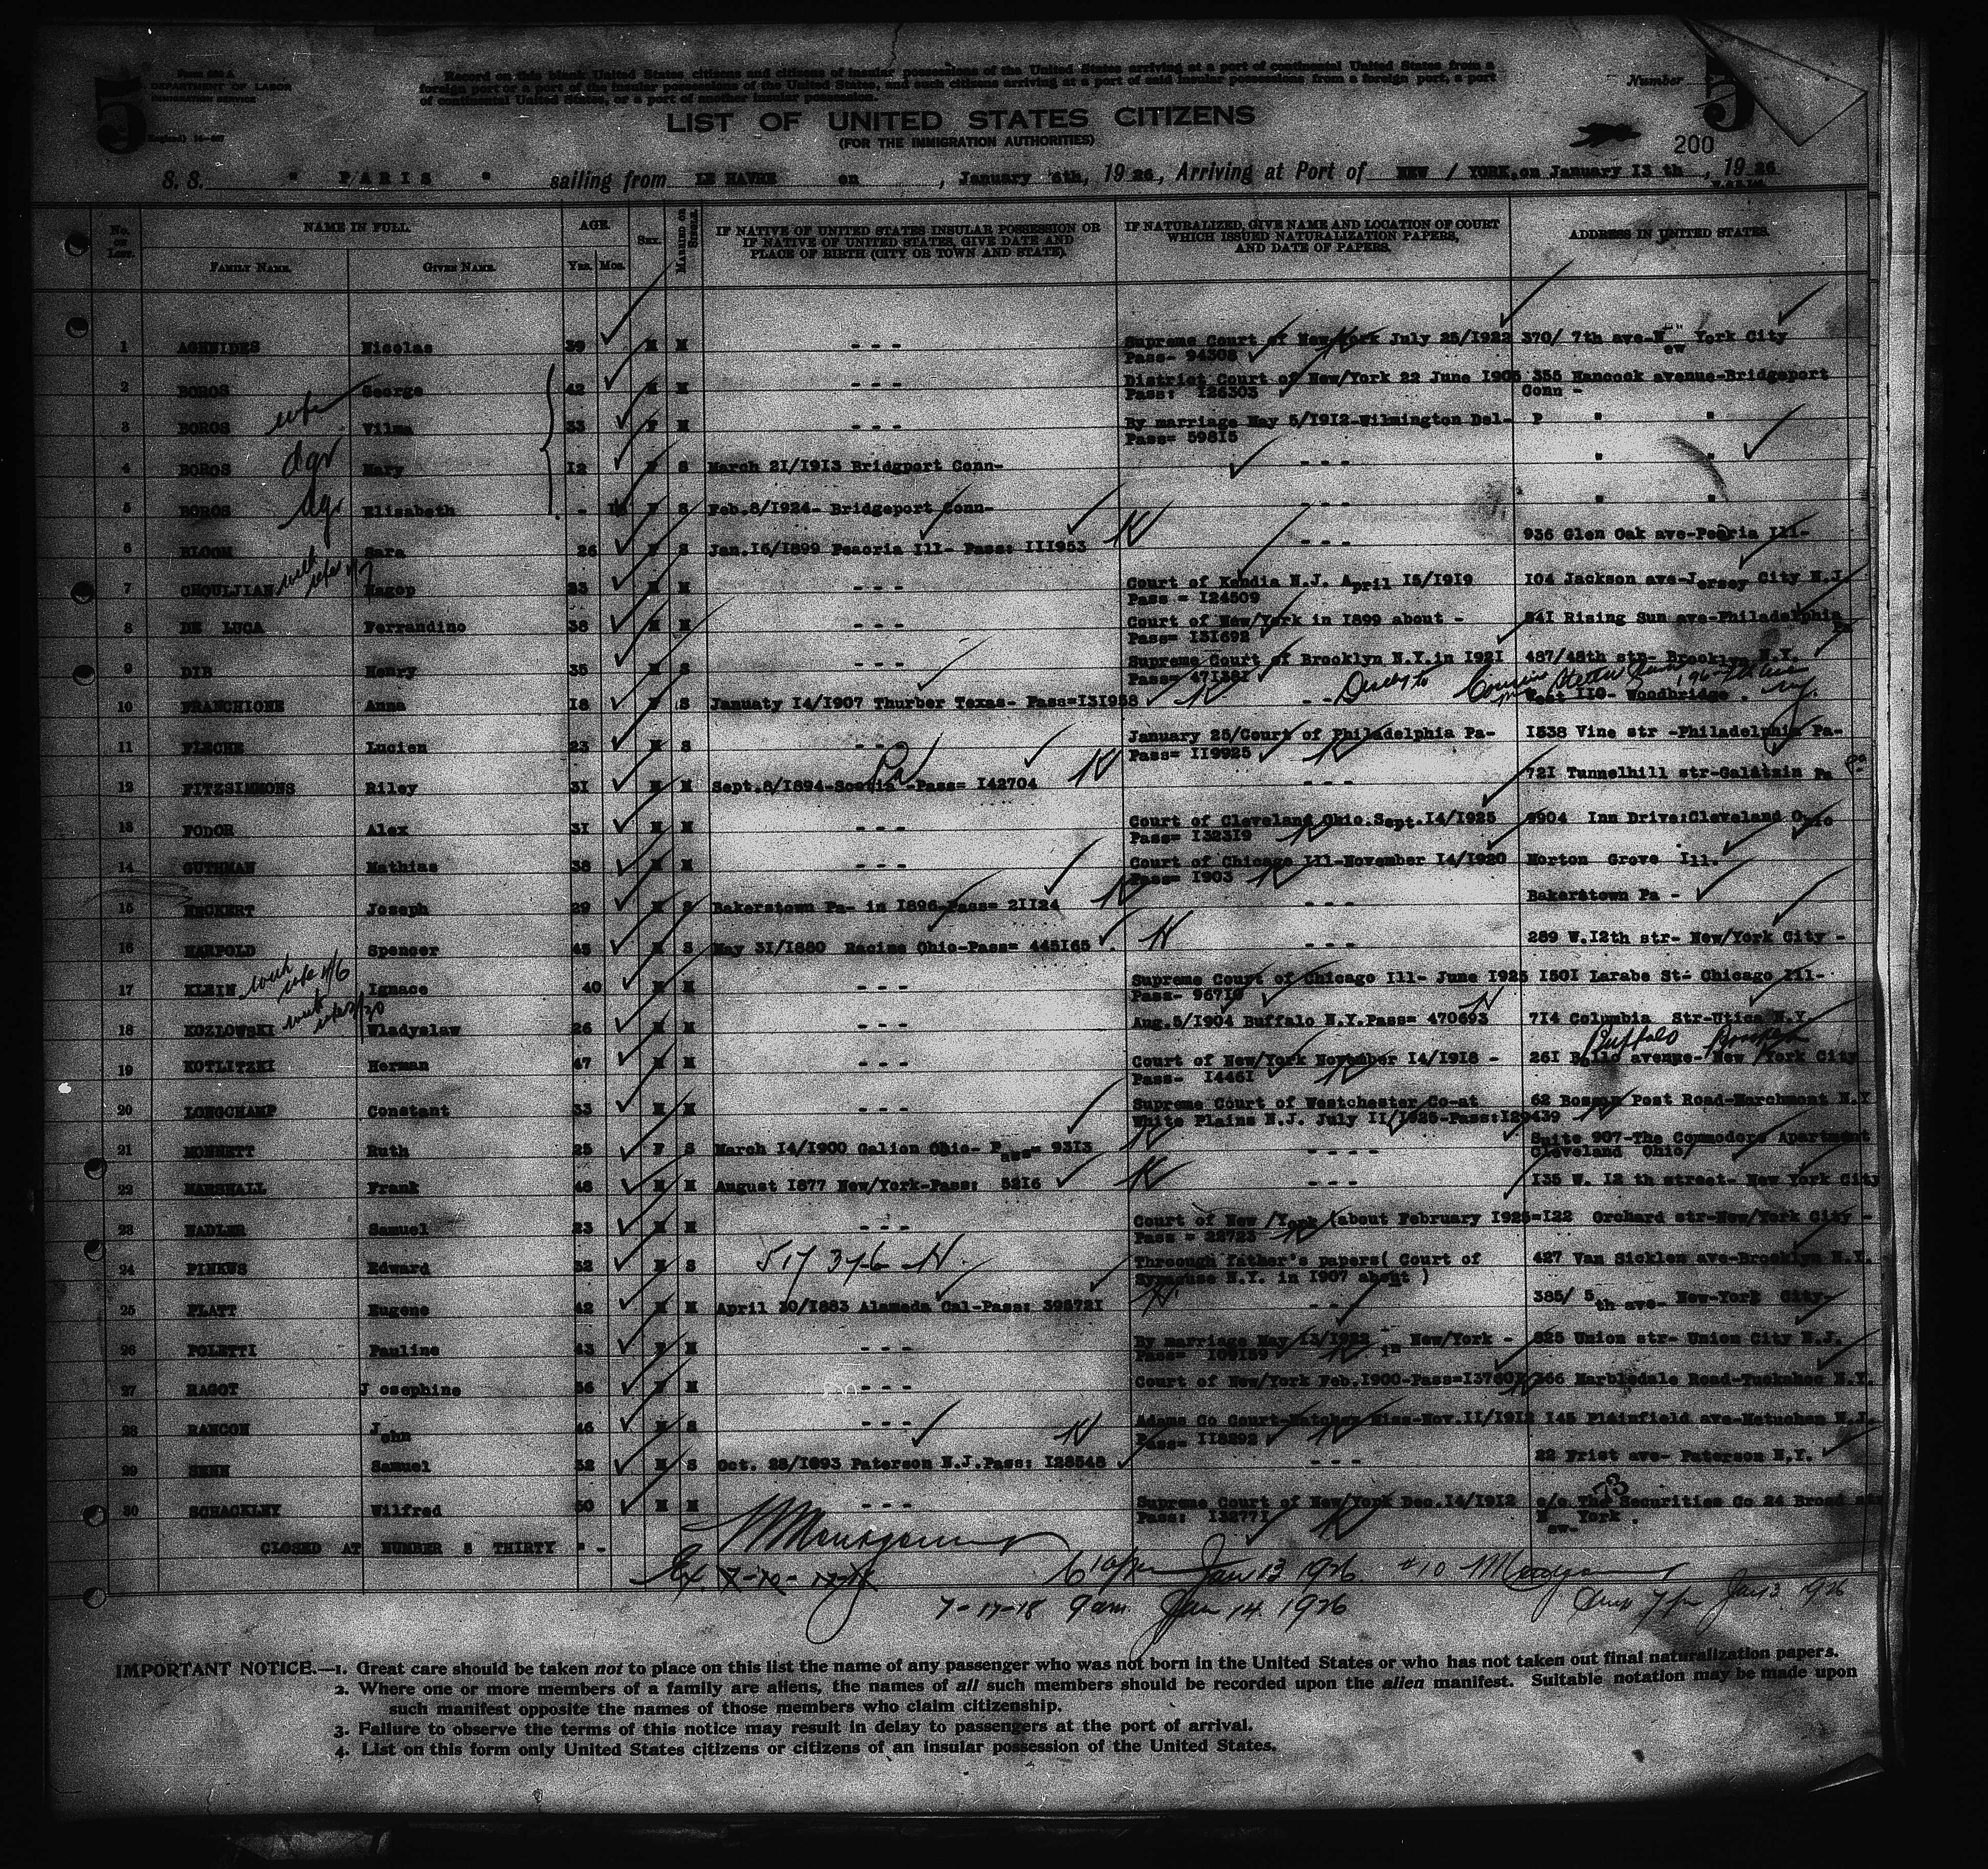 5
Form 630 A
DEPARTMENT OF LABOR
IMMIGRATION SERVICE
Record on this blank United States citizens and citizens of insular possessions of the United States arriving at a port of continental United States from a
foreign port or a port of the insular possessions of the United States, and such citizens arriving at a port of said insular possessions from a foreign port, a port
of continental United States, or a port of another insular possession.
Number 5
LIST OF UNITED STATES CITIZENS
(FOR THE IMMIGRATION AUTHORITIES)
200
S. S. " PARIS " sailing from LE HAVRE on , January 6th, 1926, Arriving at Port of NEW / YORK, on January 13 th , 1926
No. on List.
NAME IN FULL.
AGE.
Sex.
Married or Single.
IF NATIVE OF UNITED STATES INSULAR POSSESSION OR
IF NATIVE OF UNITED STATES, GIVE DATE AND
PLACE OF BIRTH (CITY OR TOWN AND STATE).
IF NATURALIZED, GIVE NAME AND LOCATION OF COURT
WHICH ISSUED NATURALIZATION PAPERS,
AND DATE OF PAPERS.
ADDRESS IN UNITED STATES.
Family Name. Given Name. Yrs. Mos.
1 AGHNIDES Nicolas 39 M M - - - Supreme Court of New/York July 25/1922 370/ 7th ave-New York City
Pass- 94308
2 BOROS George 42 M M - - - District Court of New/York 22 June 1905 355 Hancock avenue-Bridgeport
Pass: 126303 Conn -
3 BOROS wife Vilma 33 F M - - - By marriage May 5/1912-Wilmington Del- P " "
Pass= 59815
4 BOROS dgr Mary 12 F S March 21/1913 Bridgport Conn- - - - " "
5 BOROS dgr Elisabeth - F S Feb.8/1924- Bridgeport Conn- " "
6 BLOOM Sara 26 F S Jan.16/1899 Peaoria Ill- Pass: 111953 - - - 936 Glen Oak ave-Peoria Ill-
7 CHOULJIAN with wife Hagop 33 M M - - - Court of Kandia N.J. April 15/1919 104 Jackson ave-Jersey City N.J.
Pass = 124509
8 DE LUCA Ferrandino 38 M M - - - Court of New/York in 1899 about - 541 Rising Sun ave-Philadelphia
Pass= 131692 Pa
9 DIB Henry 35 M S - - - Supreme Court of Brooklyn N.Y.in 1921 487/48th str- Brooklyn N.Y.
Pass= 471381
10 FRANCHIONE Anna 18 F S Januaty 14/1907 Thurber Texas- Pass=131958 - - West 110- Woodbridge .
11 FLECHE Lucien 23 M S - - January 25/Court of Philadelphia Pa- 1538 Vine str -Philadelphia Pa-
Pass= 119925
12 FITZSIMMONS Riley 31 M M Sept.8/1894-Scotia Pa -Pass= 142704 - - - 721 Tunnelhill str-Galitzin Pa
13 FODOR Alex 31 M M - - - Court of Cleveland Ohio.Sept.14/1925 9904 Inn Drive:Cleveland Ohio
Pass= 132319
14 GUTHMAN Mathias 38 M M - - - Court of Chicago Ill-November 14/1920 Morton Grove Ill.
Pass= 1903
15 HECKERT Joseph 29 M S Bakerstown Pa- in 1896-Pass= 21124 - - - Bakerstown Pa -
16 HARPOLD Spencer 45 M S May 31/1880 Racine Ohio-Pass= 445165 - - - 289 W.12th str- New/York City -
17 KLEIN with wife Ignace 40 M M - - - Supreme Court of Chicago Ill- June 1925 1501 Larabe St- Chicago Ill-
18 KOZLOWSKI with wife Wladyslaw 26 M M - - - Aug.5/1904 Buffalo N.Y.Pass= 470693 714 Columbia Str-Utica N.Y.
Buffalo Brooklyn
19 KOTLITZKI Herman 47 M M - - - Court of New/York November 14/1918 - 261 avenue- New /York City
Pass- 14461
20 LONGCHAMP Constant 33 M M Supreme Court of Westchester Co-at 62 Boston Post Road-Marchmont N.Y
White Plains N.J. July 11/1925-Pass:129439
21 MONNETT Ruth 25 F S March 14/1900 Galion Ohio- Pass= 9313 - - - - Suite 907-The Commodore Apartment
Cleveland Ohio/
22 MARSHALL Frank 48 M M August 1877 New/York-Pass: 5216 - - - 135 W. 12 th street- New York City
23 NADLER Samuel 23 M M - - - Court of New /York (about February 1925=122 Orchard str-New/York City -
Pass = 22723
24 PINKUS Edward 32 M S 517376 Through father's papers( Court of 427 Van Sicklen ave-Brooklyn N.Y.
Syracuse N.Y. in 1907 about )
25 PLATT Eugene 42 M M April 30/1883 Alameda Cal-Pass: 395721 - - 385/ 5th ave- New-York City-
26 POLETTI Pauline 43 F M - - - By marriage May 13/1922 - in New/York - 825 Union str- Union City N.J.
27 RAGOT Josephine 56 F M - - - Court of New/York Feb.1900-Pass=13760 266 Marbledale Road-Tuckahoe N.Y.
28 RANCON John 46 M S - - - Adams Co Court-Natchez Miss-Nov.11/1912 145 Plainfield ave-Metuchen N.J.
Pass= 118292
29 SENN Samuel 32 M S Oct. 28/1893 Paterson N.J.Pass: 128548 - - - 22 Frist ave- Paterson N.Y.
30 SCHACKLEY Wilfred 50 M M - - - Supreme Court of New/York Dec.14/1912 c/o The Securities Co 24 Broad str
Pass: 132771 New- York .
CLOSED AT NUMBER : THIRTY " -
Jan 13 1926 #10
7-17-18 9am Jan 14 1926 Jan 13, 1926
IMPORTANT NOTICE.—1. Great care should be taken not to place on this list the name of any passenger who was not born in the United States or who has not taken out final naturalization papers.
2. Where one or more members of a family are aliens, the names of all such members should be recorded upon the alien manifest. Suitable notation may be made upon
such manifest opposite the names of those members who claim citizenship.
3. Failure to observe the terms of this notice may result in delay to passengers at the port of arrival.
4. List on this form only United States citizens or citizens of an insular possession of the United States.